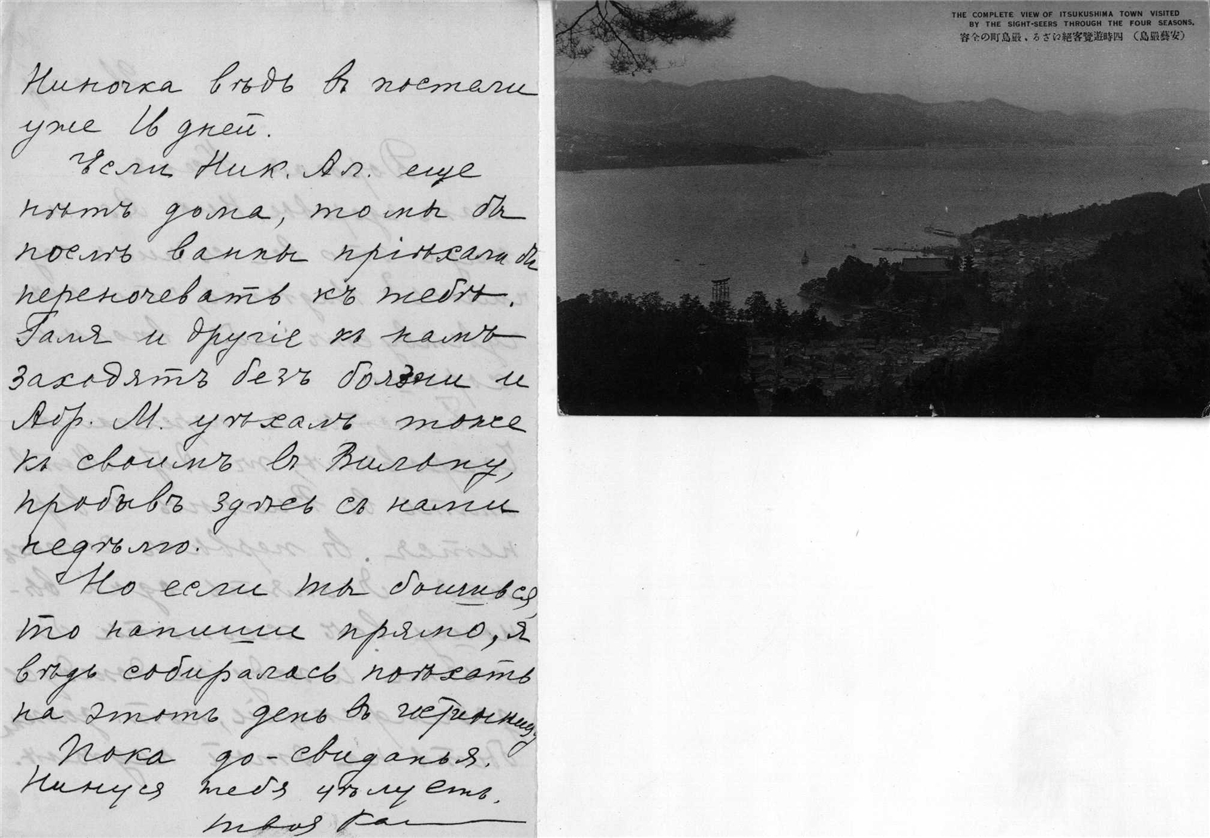 Ниночка вѣдь въ постели
уже 16 дней.
Если Ник. Ал. еще
нѣтъ дома, то мы бы
послѣ ванны пріѣхали бы
переночевать къ тебѣ.
Галя и другіе къ намъ
заходятъ безъ боязни и
Абр. М. уѣхалъ тоже
къ своимъ въ Вильну,
пробывъ здѣсь съ нами
недѣлю.
Но если ты боишься,
то напиши прямо, я
вѣдь собиралась поѣхать
на этотъ день въ
Пока до-свиданья.
Нинуся тебя цѣлуетъ.
твоя
THE COMPLETE VIEW OF ITSUKUSHIMA TOWN VISITED
BY THE SIGHT-SEERS THROUGH THE FOUR SEASONS.
（安藝嚴島） 四時遊覽客絕にざる、嚴島町の全容